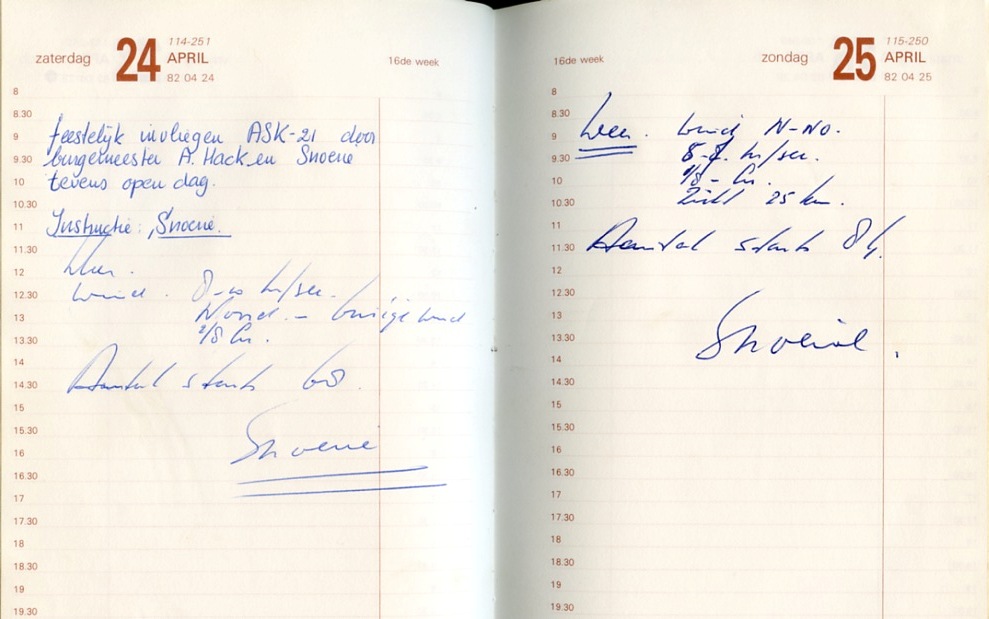 zaterdag 24 114-251
APRIL
82 04 24
16de week
8
8.30
feestelijk invliegen ASK-21 door
9
burgemeester A. Hack en Snoene
9.30
tevens open dag.
10
10.30
Instructie: Snoene.
11
11.30
Weer.
12
wind. 8-10 m/sec.
12.30
Noord. -
13
2/8 Cu.
13.30
14
Aantal starts 68.
14.30
15
15.30
Snoene
16
16.30
17
17.30
18
18.30
19
19.30
16de week
zondag 25 115-250
APRIL
82 04 25
8
8.30
Weer. Wind N-NO.
9
m/sec.
9.30
1/8 - Cu.
10
Zicht 25 km.
10.30
11
Aantal starts 84.
11.30
12
12.30
13
Snoeink.
13.30
14
14.30
15
15.30
16
16.30
17
17.30
18
18.30
19
19.30